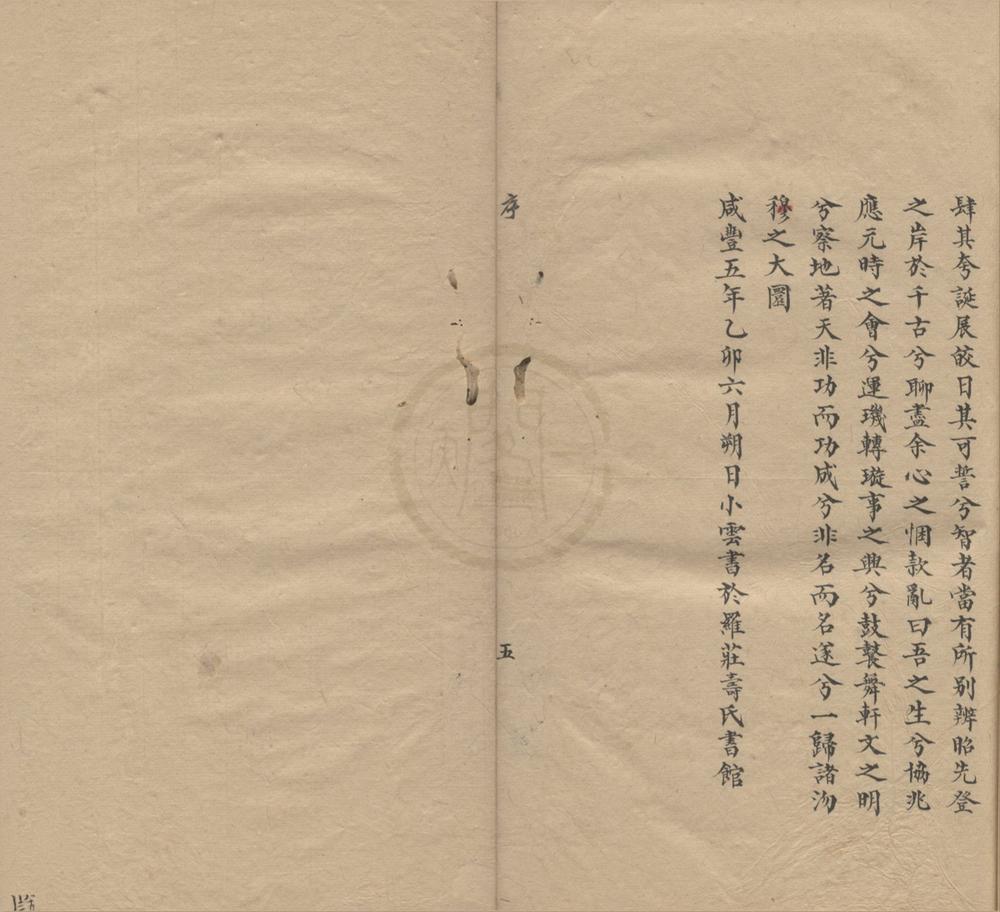 肆其夸誕展皎日其可誓兮智者當有所別辨昭先登
之岸於千古兮聊盡余心之悃款亂曰吾之生兮協兆
應元時之會兮運璣轉璇事之興兮鼓鼚舞軒文之明
兮察地著天非功而功成兮非名而名遂兮一歸諸沕
穆之大圜
咸豐五年乙卯六月朔日小雲書於羅莊壽氏書館
序
五